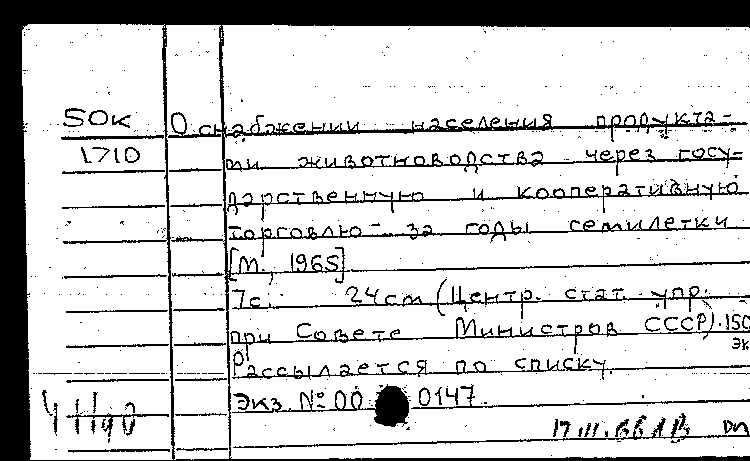 50к О снабжении населения продукта-
1710 ми животноводства через госу-
дарственную и кооперативную
торговлю за годы семилетки
[М., 1965]
7с. 24см (Центр. стат. упр.
при Совете Министров СССР). 150
эк
Рассылается по списку.
Экз. № 00 0147.
17.III.66